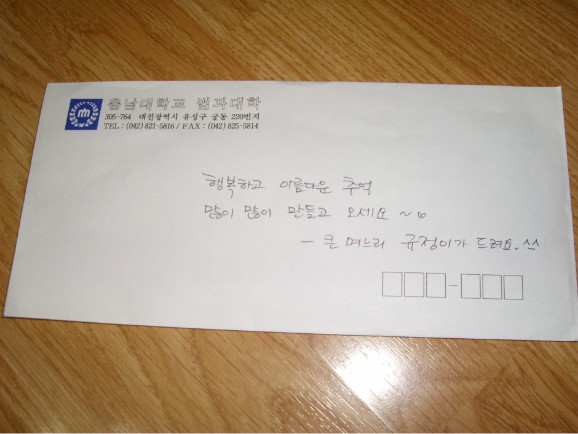 충남대학교 법과대학
305-764 대전광역시 유성구 궁동 220번지
TEL : (042) 821-5816 / FAX : (042) 825-5814
행복하고 아름다운 추억
많이 많이 만들고 오세요 ~
- 큰 며느리 규정이가 드려요.